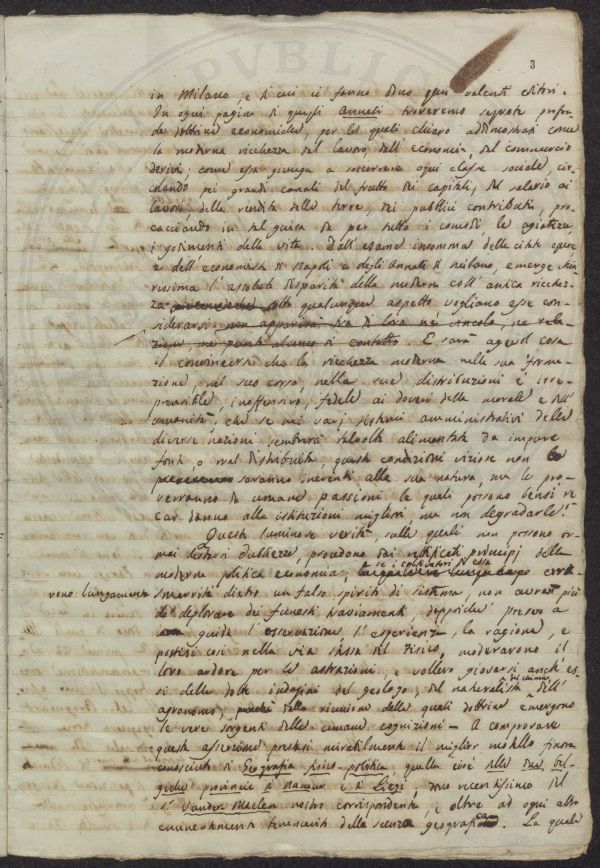 3
in Milano, e di cui ci fanno dono que' valenti Editori.
In ogni pagina di quegli Annali troveremo segnate profon-
de dottrine economiche, per le quali chiaro addimostrasi come
la moderna ricchezza dal lavoro, dall' economia, dal commercio
derivi; come essa giunga a soccorrere ogni classe sociale, cir-
colando pei grandi canali del frutto dei capitali, del salario ai
lavori, della rendita delle terre, dei pubblici contributi, pro-
cacciando in tal guisa da per tutto i comodi, le agiatezze,
i godimenti della vita. Dall' esame insomma delle citate opere
e dell' economisti di Napoli e degli Annali di Milano, emerge chia-
rissima l' assoluta disparità della moderna coll' antica ricchez-
za sotto qualunque aspetto vogliano esse con-
siderarsi, non apparirà tra di loro nè vincolo, nè rela-
zione, nè punto alcuno di contatto. E sarà agevol cosa
il convincersi che la ricchezza moderna nella sua forma-
zione, nel suo corso, nella sua distribuzione è irre-
prensibile, inoffensiva, fedele ai doveri della morale e dell'
umanità; che se nei varj sistemi amministrativi delle
diverse nazioni sembrerà talvolta alimentata da impure
fonti, o mal distribuita, queste condizioni viziose non le
saranno inerenti alla sua natura, ma le pro-
verranno da umane passioni le quali possono bensì re-
car danno alle istituzioni migliori, ma non degradarle!
Queste luminose verità, sulle quali non possono or-
mai destarsi dubbiezze, procedono dai rettificati principj della
moderna politica economia; se i cultatori di essa
vono lungamente
smarriti dietro un falso spirito di sistema, non avran più
da deplorare dei funesti traviamenti, dappoichè presero a
guida l' osservazione, l' esperienza, la ragione, e
postisi così nella via stessa del Fisico, moderarono il
loro ardore per le astrazioni; e vollero giovarsi anch' es-
si delle dotte indagini del geologo, del naturalista, del chimico, dell'
agronomo, della riunione delle quali dottrine emergono
le vere sorgenti delle umane cognizioni - A comprovare
questa asserzione prestasi mirabilmente il miglior modello finora
conosciuto di Geografia fisico-politica, quella cioè delle due bel-
giche provincie di Namur e di Liegi, dono recentissimo del
Sr. Vander-Maelen nostro corrispondente, e oltre ad ogni altro
eminentemente benemerito della scienza geografica. La quale